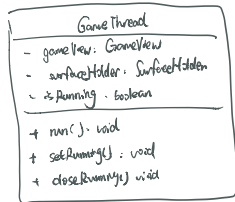 GameThread
- gameView: GameView
- surfaceHolder: SurfaceHolder
- isRunning : boolean
+ run() : void
+ setRunning() : void
+ closeRunning() void